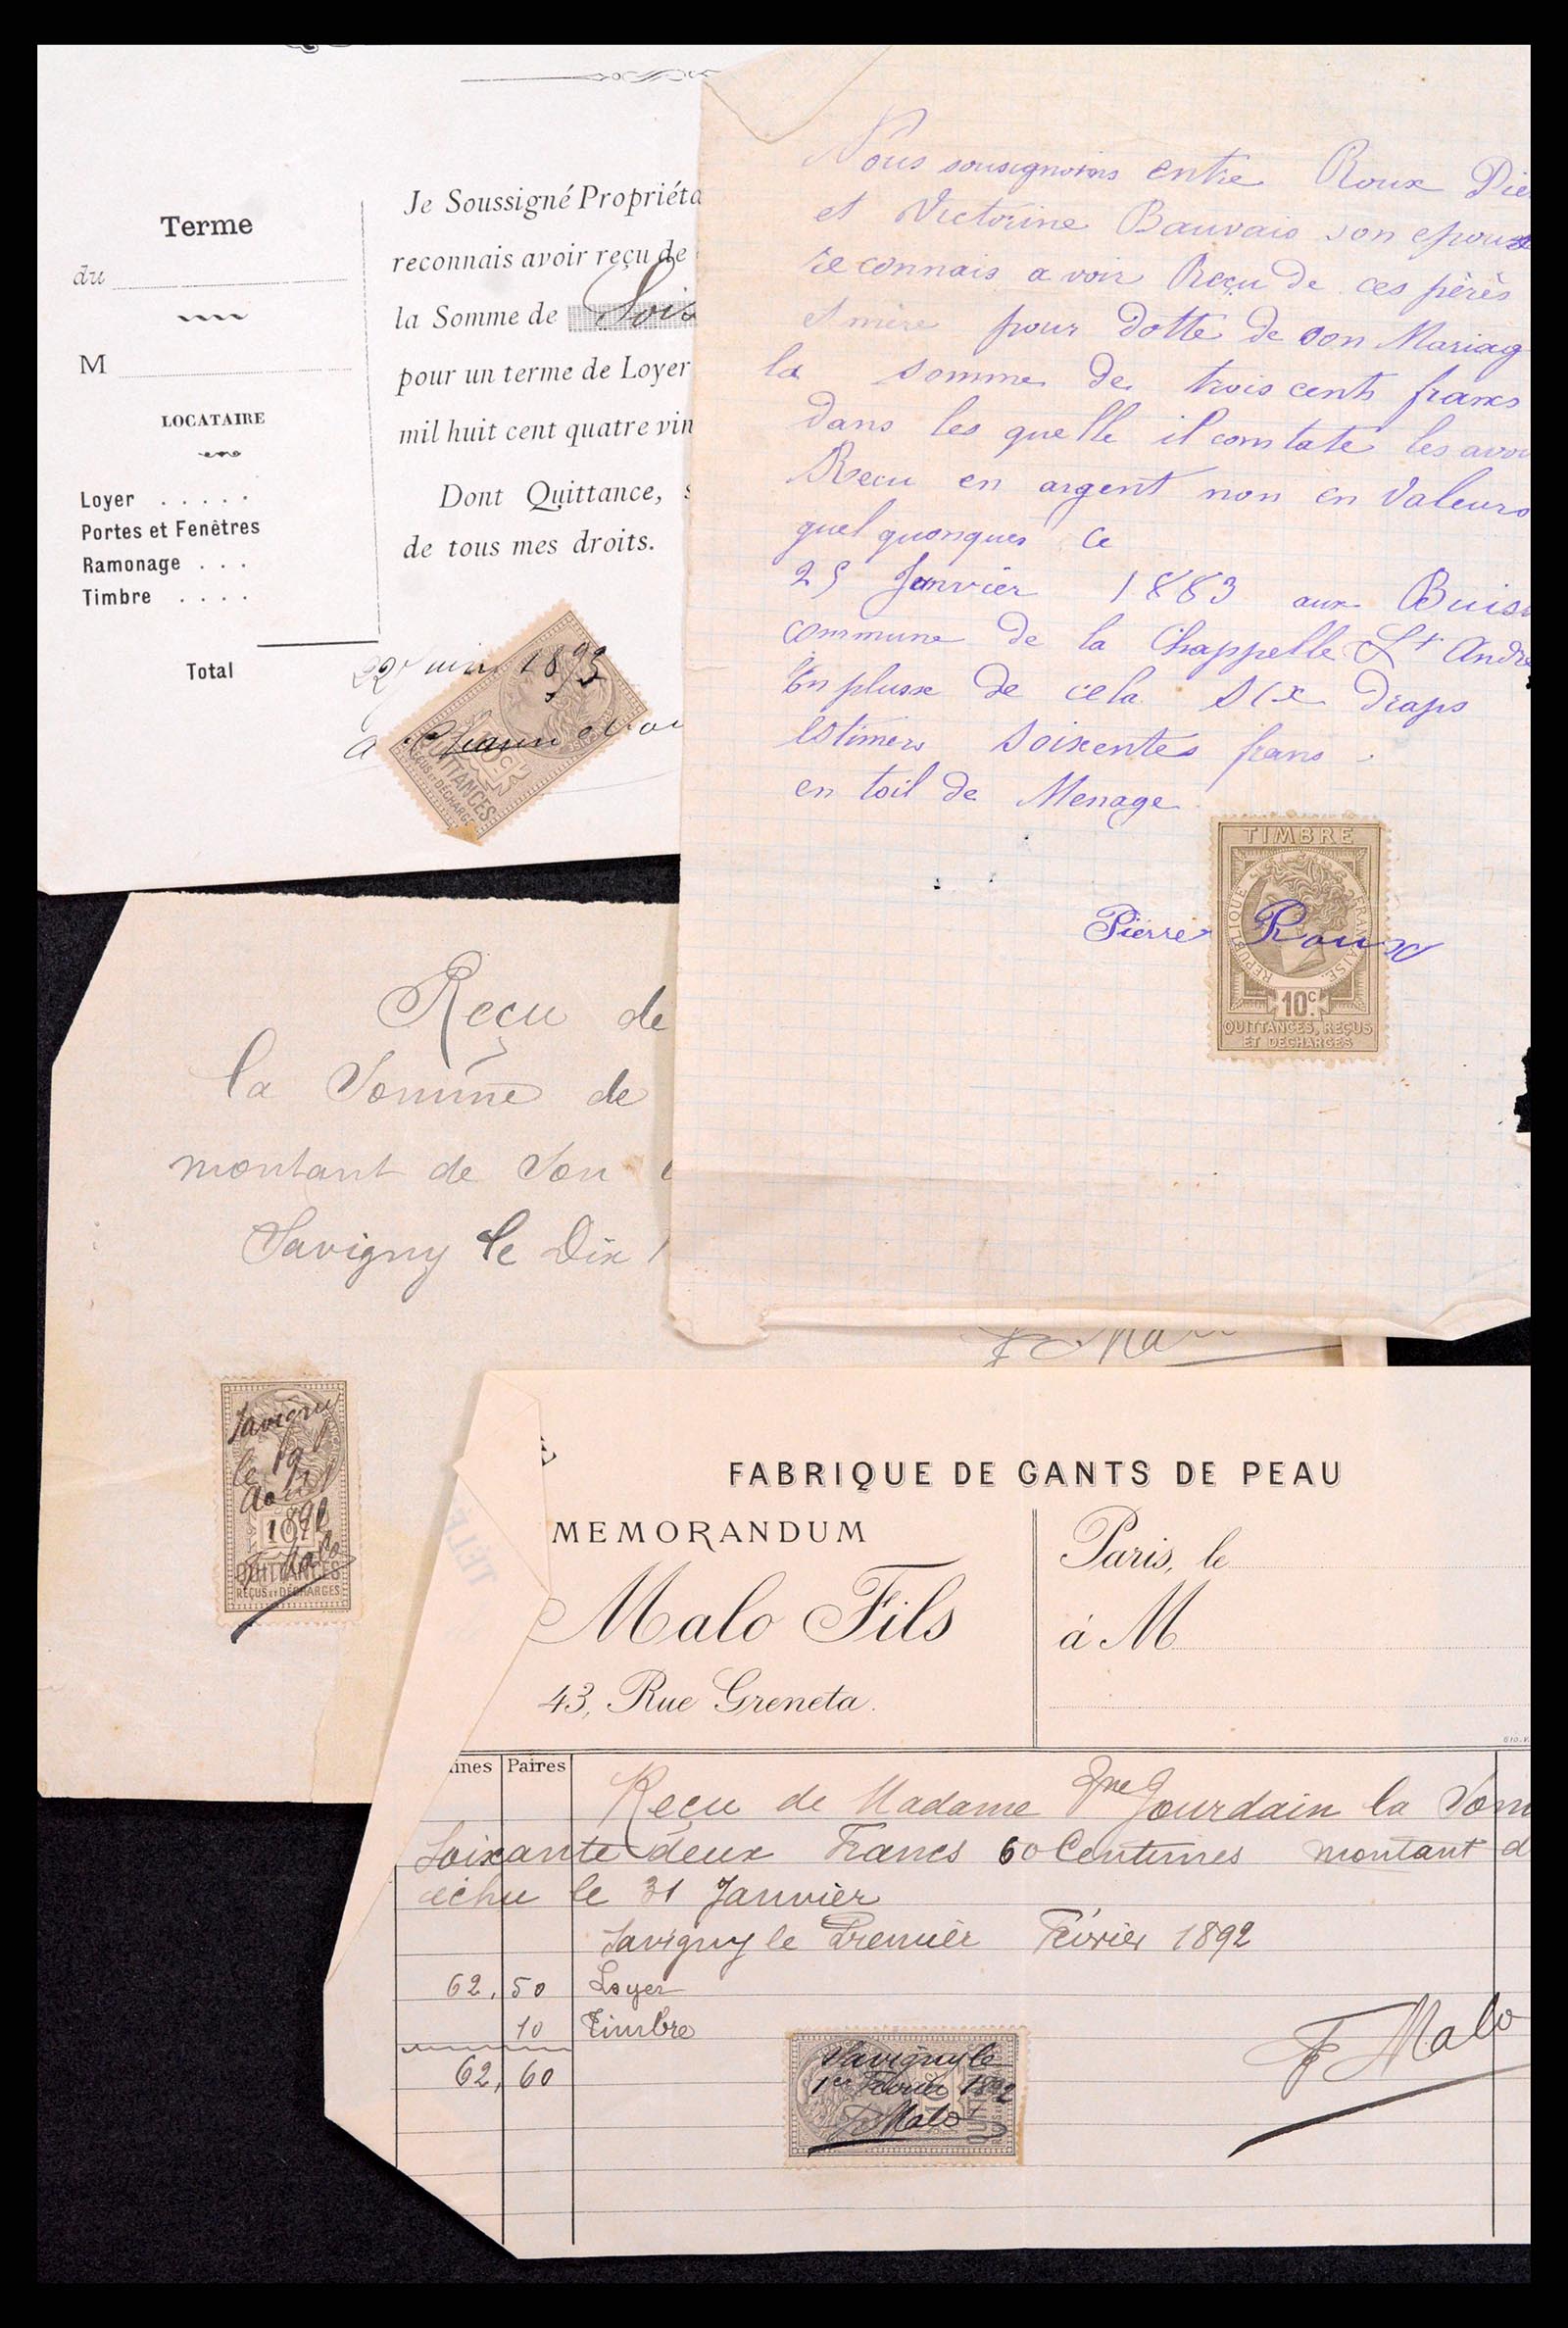 Terme
du
M
LOCATAIRE
Loyer . . . . .
Portes et Fenêtres
Ramonage . . .
Timbre . . . .
Total
Je Soussigné Propriéta
reconnais avoir reçu de
la Somme de Soix
pour un terme de Loyer
mil huit cent quatre vin
Dont Quittance, s
de tous mes droits.
1893
a
10c
QUITTANCES
REÇUS ET DÉCHARGE
Nous sousignoins entre Roux Pie
et Victorine Bauvais son epouse
reconnais avoir Reçu de ces pèrès
et mère pour dotte de son Mariag
la somme de trois cents francs
dans les quelle il constate les avoi
Recu en argent non en Valeurs
quel quonques ce
25 Janvier 1883 aux Buiss
commune de la Chappelle St Andre
En plusse de cela Six draps
estimers soixentes frans .
en toil de Menage
Pierre Roux
TIMBRE
RÉPUBLIQUE FRANÇAISE.
10c.
QUITTANCES, REÇUS
ET DÉCHARGES
Reçu de
la Somme de
montant de Son
Savigny le Dix
F Malo
Savigny
le 19
Aout
1892
F Malo
QUITTANCES
REÇUS ET DÉCHARGES
TÊTE
FABRIQUE DE GANTS DE PEAU
MEMORANDUM
Malo Fils
43, Rue Greneta.
Paris, le
à M
ines Paires
Reçu de Madame Vve Jourdain la Som
Soixante deux Francs 60 Centimes montant d
échu le 31 Janvier
Savigny le Premièr Février 1892
62, 50 Loyer
10 Timbre
62, 60
Savigny le
1er Février 1892
F Malo
F Malo